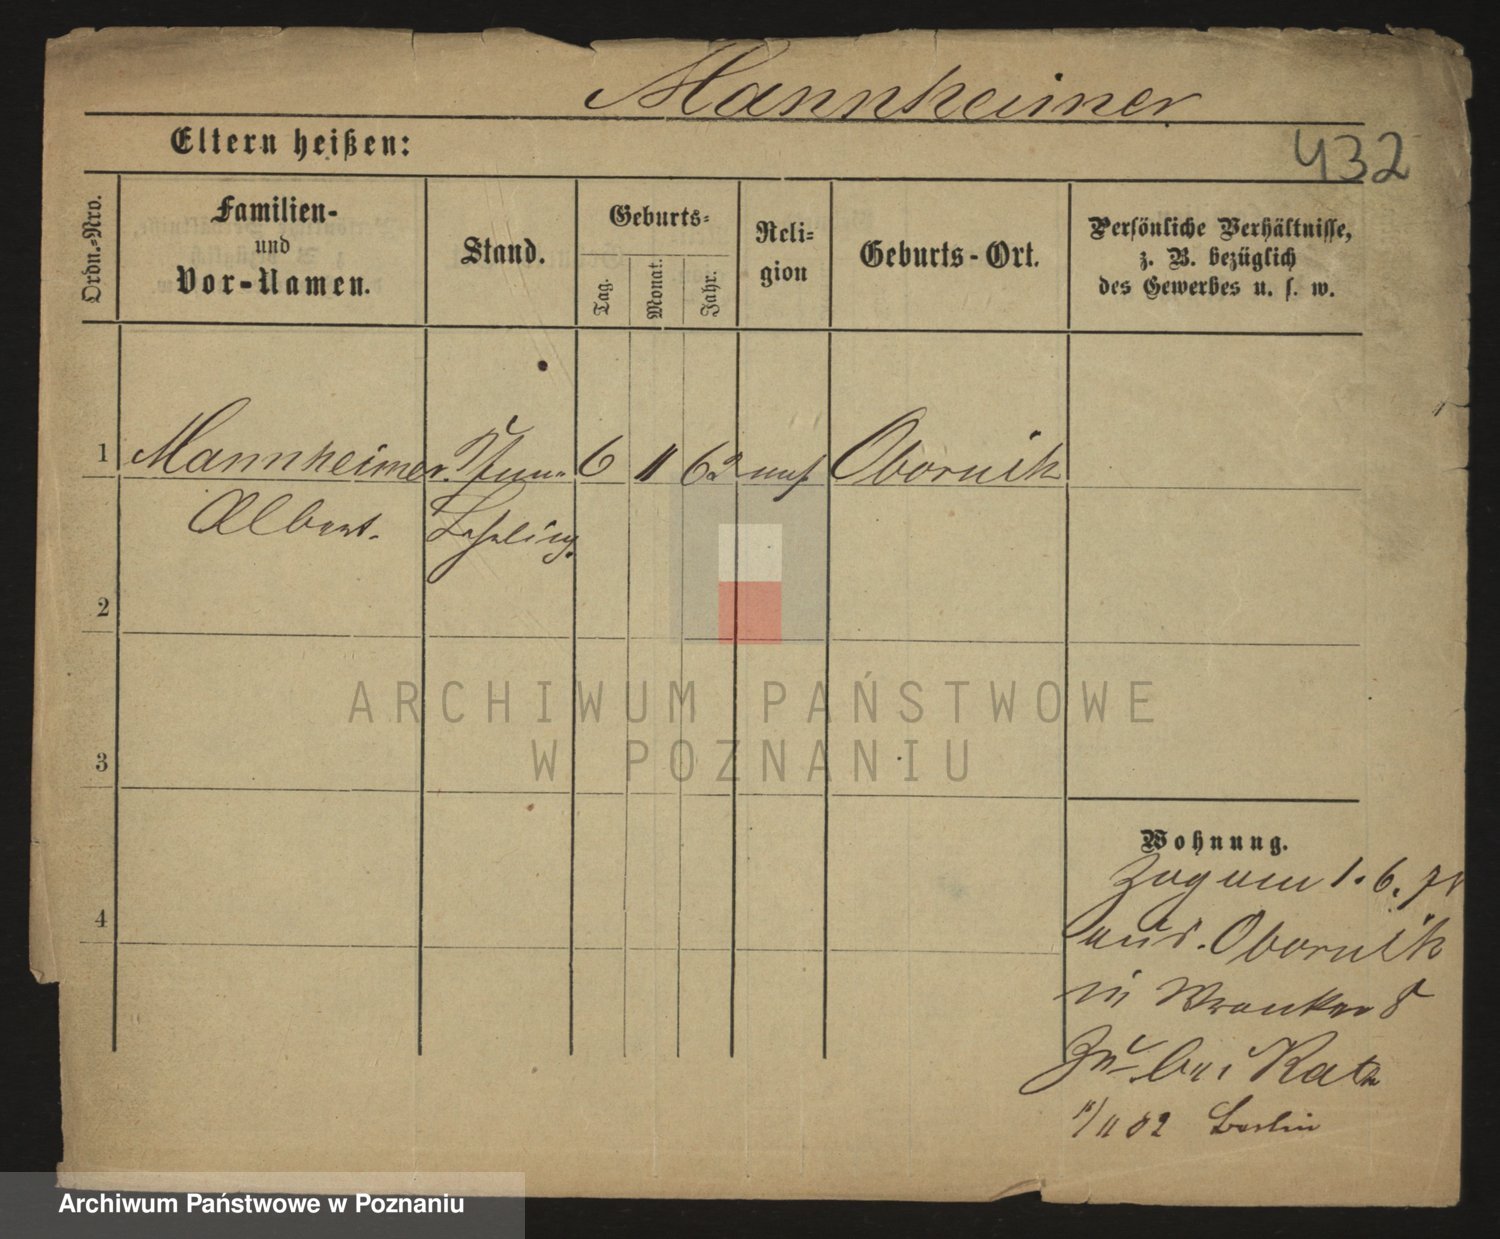 Mannheimer
432
Eltern heißen:
Ordn.-Nro.
Familien-
und
Vor-Namen.
Stand.
Geburts-
Tag.
Monat.
Jahr.
Reli-
gion
Geburts-Ort.
Persönliche Verhältnisse,
z. B. bezüglich
des Gewerbes u. s. w.
1 Mannheimer. 6 11 62 mos Obornik
Albert. Lehrling.
2
3
4
Wohnung.
Zog am 1. 6. 78
aus. Obornik
in Wronker 8
zu bei Katz
11/11 82 Berlin
ARCHIWUM PAŃSTWOWE
W POZNANIU
Archiwum Państwowe w Poznaniu